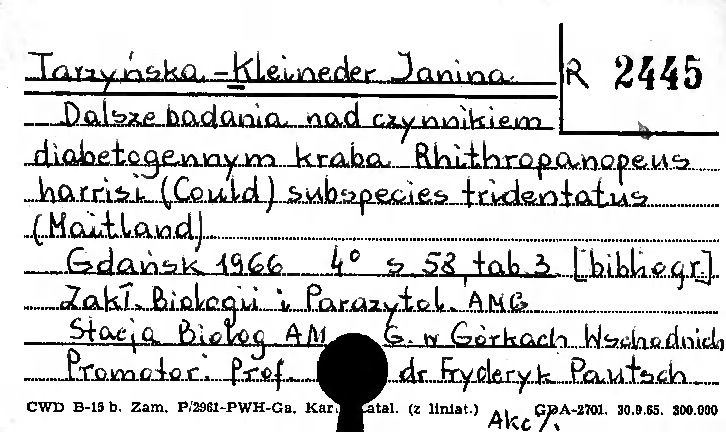 Tarzyńska-Kleineder Janina R 2445
Dalsze badania nad czynnikiem
diabetogennym kraba Rhithropanopeus
harrisi (Could) subspecies tridentatus
(Maitland)
Gdańsk 1966 4° s 58, tab 3 [bibliogr.]
Zakł. Biologii i Parazytol. AMG
Stacja Biolog AM G. w Górkach Wschodnich
Promotor: Prof. dr Fryderyk Pautsch
CWD B-15 b. Zam. P/2961-PWH-Ga. Kar. atal. (z liniat.) GDA-2701. 30.9.65. 300.000
Akc